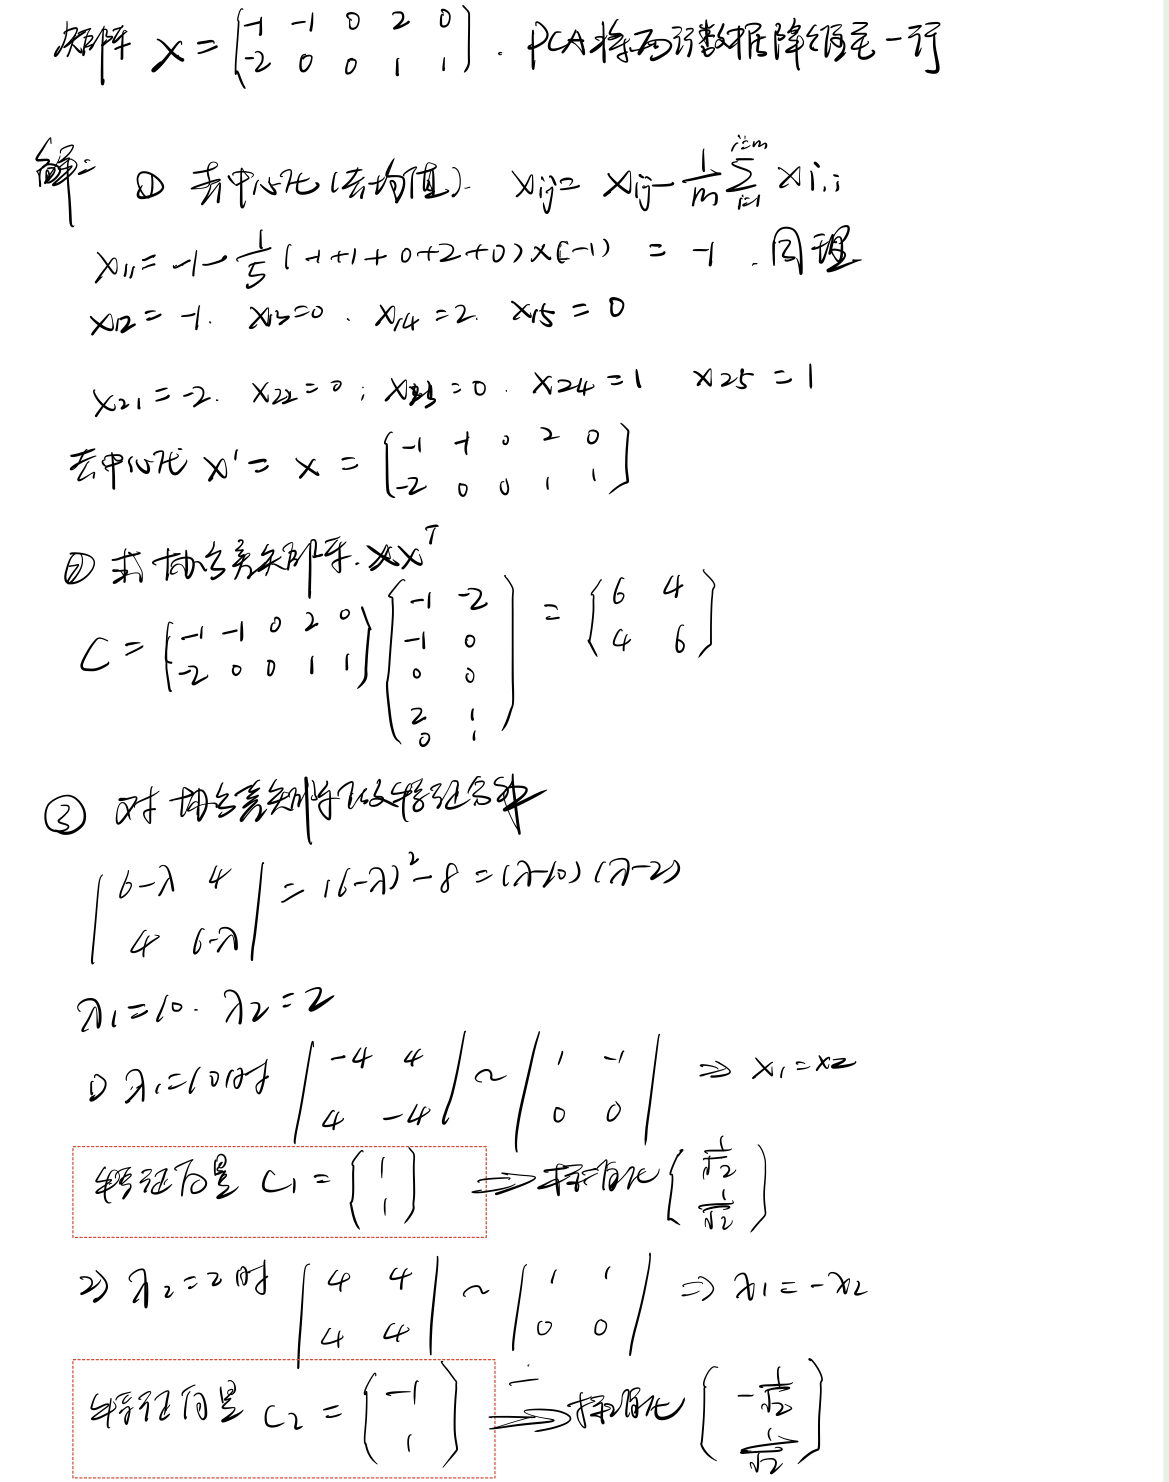 矩阵 X = [-1 -1 0 2 0; -2 0 0 1 1]. PCA将两行数据降维至一行
解: ① 去中心化(去均值). xij = xij - 1/m Σ(i=1, i=m) xi,j
x11 = -1 - 1/5 (-1+1+0+2+0)×(-1) = -1. 同理
x12 = -1. x13=0. x14=2. x15=0
x21=-2. x22=0; x23=0. x24=1 x25=1
去中心化 X' = X = [-1 -1 0 2 0; -2 0 0 1 1]
② 求协方差矩阵. XX^T
C = [-1 -1 0 2 0; -2 0 0 1 1] [-1 -2; -1 0; 0 0; 2 1; 0 1] = [6 4; 4 6]
③ 对协方差矩阵做特征分解
|6-λ 4; 4 6-λ| = (6-λ)²-8 = (λ-10)(λ-2)
λ1=10. λ2=2
1) λ1=10时 |-4 4; 4 -4| ~ |1 -1; 0 0| ⇒ x1=x2
特征向量 C1 = [1; 1] ⇒ 标准化 [1/√2; 1/√2]
2) λ2=2时 |4 4; 4 4| ~ |1 1; 0 0| ⇒ x1=-x2
特征向量 C2 = [-1; 1] ⇒ 标准化 [-1/√2; 1/√2]